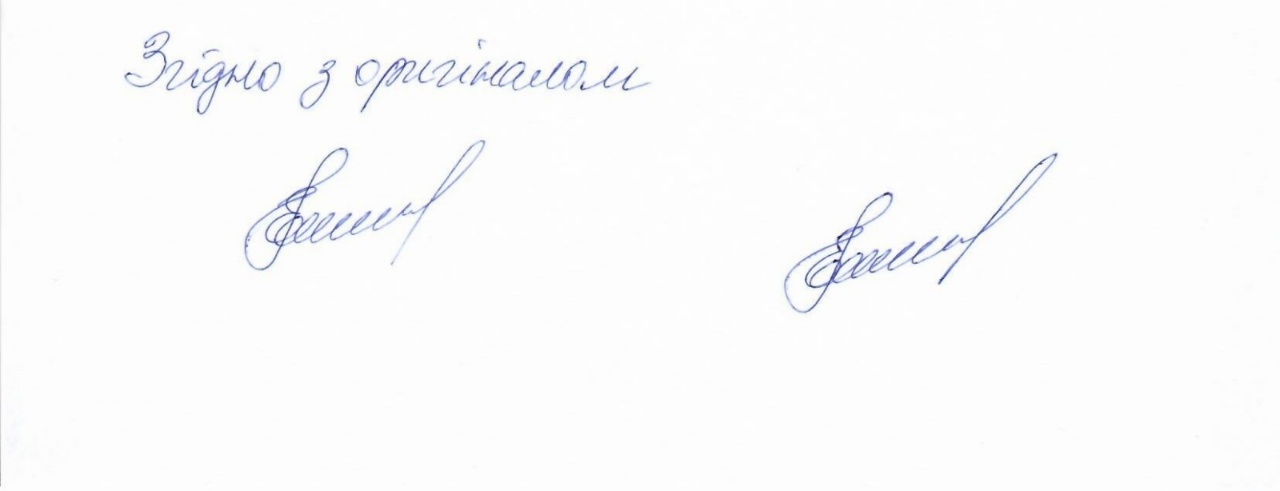 Згідно з оригіналом